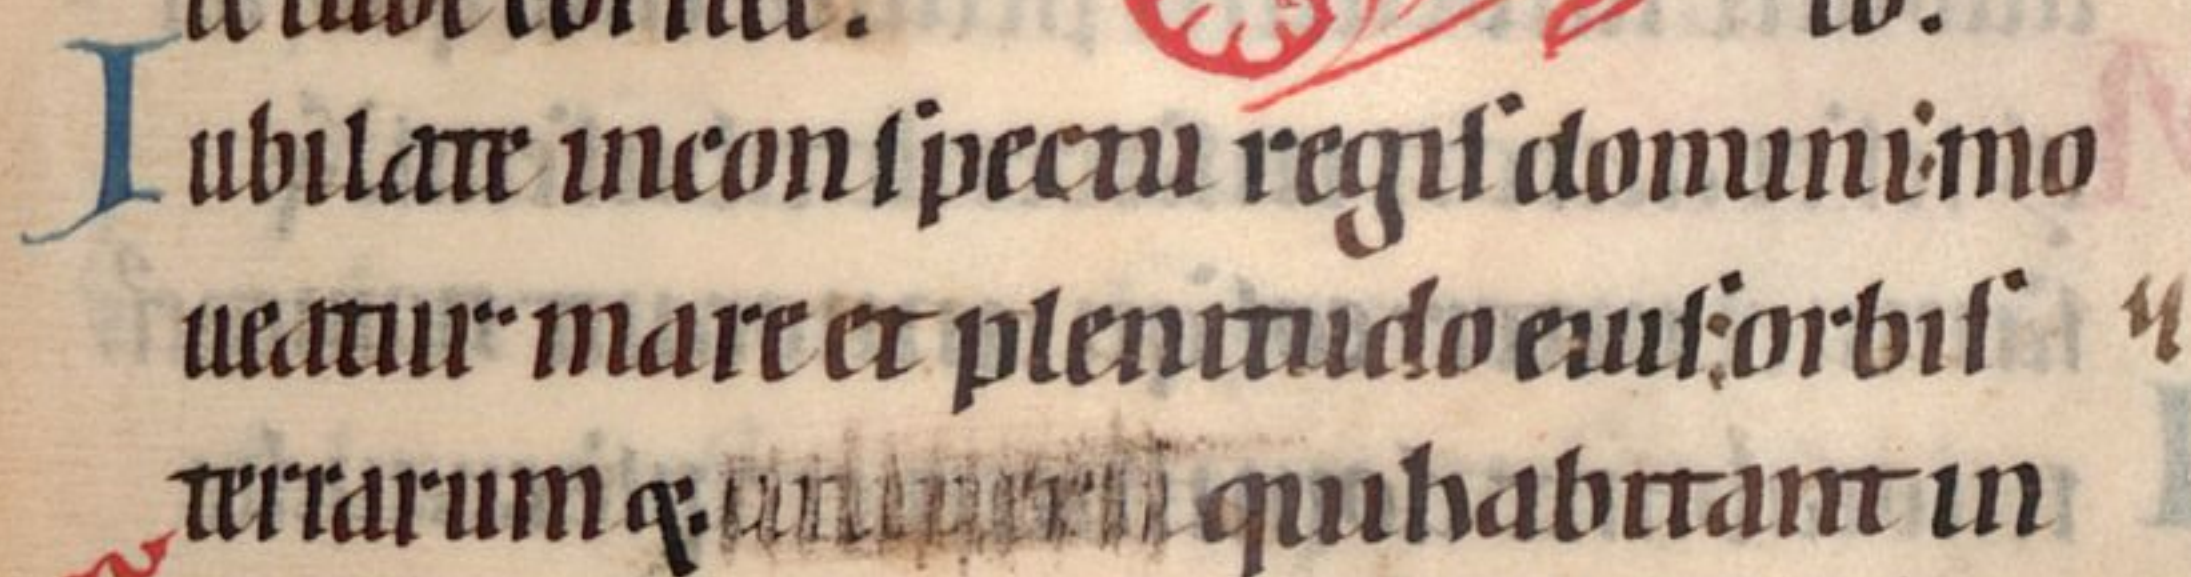 Iubilate in conspectu regis domini: mo
ueatur mare et plenitudo eius: orbis
terrarum q. qui habitant in